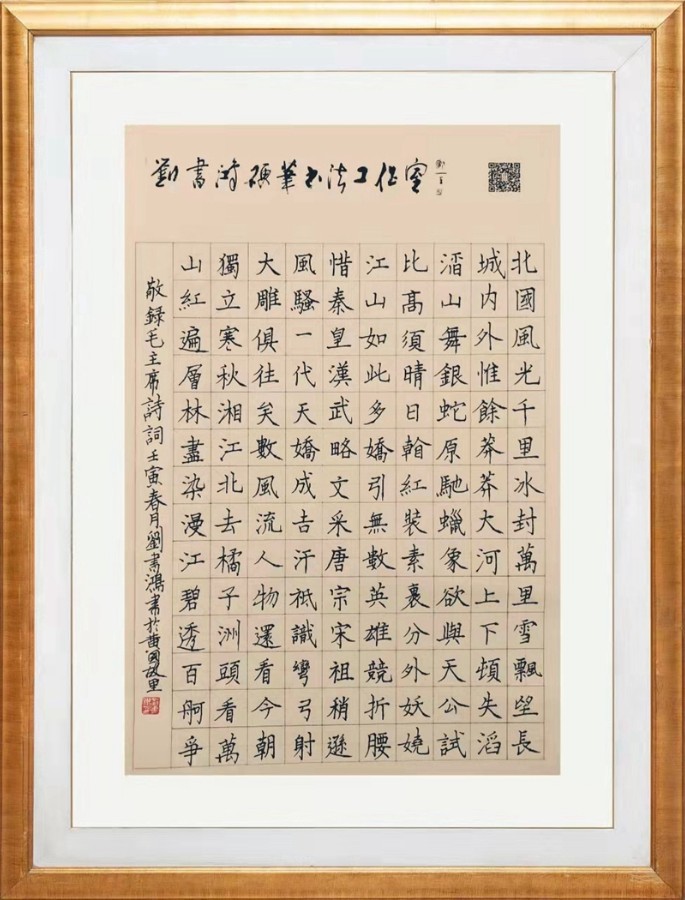 劉書鴻硬筆书法工作室
北國風光千里冰封萬里雪飄望長
城内外惟餘莽莽大河上下頓失滔
滔山舞銀蛇原馳蠟象欲與天公試
比高須晴日𥉼紅裝素裹分外妖嬈
江山如此多嬌引無數英雄競折腰
惜秦皇漢武略文采唐宗宋祖稍遜
風騷一代天嬌成吉汗祗識彎弓射
大雕俱往矣數風流人物還看今朝
獨立寒秋湘江北去橘子洲頭看萬
山紅遍層林盡染漫江碧透百舸爭
敬録毛主席詩詞壬寅春月劉書鴻書於黄國故里